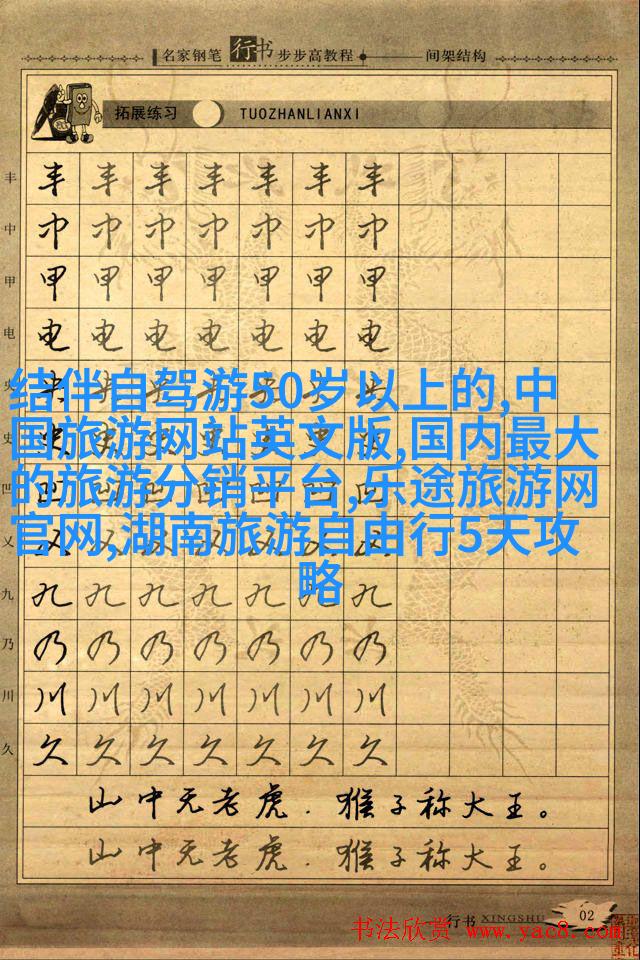 名家钢笔行书步步高教程 间架结构
拓展练习 TUOZHANLIANXI
丰 丰 丰 丰 丰 丰 丰 丰
中 中 中 中 中 中 中 中
甲 甲 甲 甲 甲 甲 甲 甲
电 电 电 电 电 电 电 电
央
结伴自驾游50岁以上的,中
史
国旅游网站英文版,国内最大
凹
的旅游分销平台,乐途旅游网
义
官网,湖南旅游自由行5天攻
略
九 九 九 九 九 九 九 九
乃 乃 乃 乃 乃 乃 乃 乃
川 川 川 川 川 川 川 川
久 久 久 久 久 久 久 久
山中无老虎.猴子称大王。
山中无老虎.猴子称大王。
行书 XINGSHU 02
书法欣赏 www.yac8.com